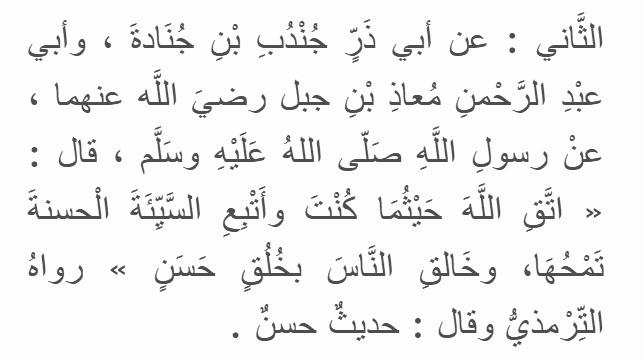 الثَّاني : عن أبي ذَرٍّ جُنْدُبِ بْنِ جُنَادةَ ، وأبي
عبْدِ الرَّحْمنِ مُعاذِ بْنِ جبل رضيَ اللَّه عنهما ،
عنْ رسولِ اللَّهِ صَلّى اللهُ عَلَيْهِ وسَلَّم ، قال :
« اتَّقِ اللَّهَ حَيْثُمَا كُنْتَ وأَتْبِعِ السَّيِّئَةَ الْحسنةَ
تَمْحُهَا، وخَالقِ النَّاسَ بخُلُقٍ حَسَنٍ » رواهُ
التِّرْمذيُّ وقال : حديثٌ حسنٌ .